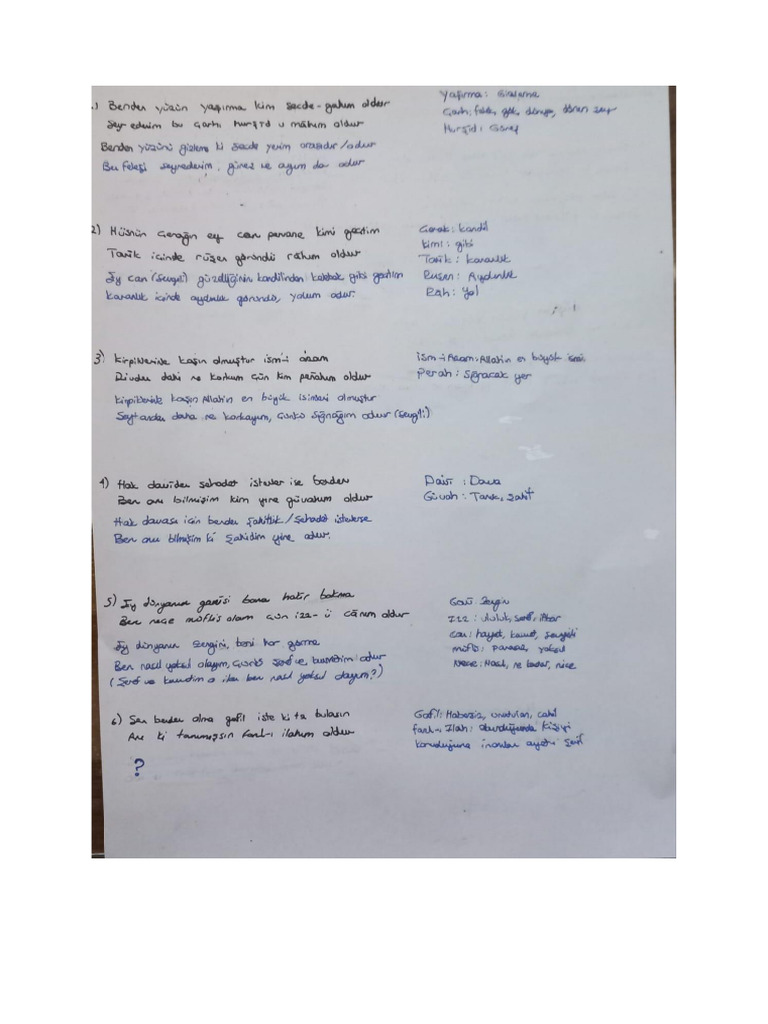 1) Benden yüzün yaşırma kim secde-gahım oldur
Seyr ederim bu çarhı hurşid u mâhım oldur
Benden yüzünü gizleme ki secde yerim orasıdır/odur
Bu feleği seyrederim, güneş ve ayım da odur
Yaşırma: Gizleme
Çarh: felek, gök, dünya, dönen şey
Hurşid: Güneş
2) Hüsnün çerağın ey can pervane kimi geçdim
Tarik içinde rüşen göründü râhım oldur
Ey can (sevgili) güzelliğinin kandilinden kelebek gibi geçtim
Karanlık içinde aydınlık göründü, yolum odur.
Çerak: kandil
kimi: gibi
Tarik: karanlık
Ruşen: Aydınlık
Rah: Yol
3) Kirpiklerinle kaşın olmuştur ism-i âzam
Divden dahi ne korkum çün kim penahım oldur
Kirpiklerinle kaşın Allahın en büyük isimleri olmuştur
Şeytandan daha ne korkayım, çünkü sığınağım odur (sevgili)
İsm-i Azam: Allahın en büyük ismi
Penah: Sığınacak yer
4) Hak daviden şehadet isterler ise benden
Ben anı bilmişim kim yine güvahım oldur
Hak davası için benden şahitlik/şehadet isterlerse
Ben onu bilmişim ki şahidim yine odur.
Davi: Dava
Güvah: Tanık, Şahit
5) Ey dünyanın ganisi bana hakir bakma
Ben nece müflis olam çün izz-ü cânım oldur
Ey dünyanın zengini, beni hor görme
Ben nasıl yoksul olayım, çünkü şeref ve kudretim odur
(Şeref ve kudretim o iken ben nasıl yoksul olayım?)
Gani: Zengin
İzz: ululuk, şeref, itibar
can: hayat, kuvvet, sevgili
müflis: parasız, yoksul
Nece: Nasıl, ne kadar, nice
6) Sen benden olma gafil iste ki ta bulasın
Anı ki tanımışsın fazl-ı ilahım oldur
?
Gafil: Habersiz, unutulan, cahil
İlah: kişiyi
koruduğuna inanılan